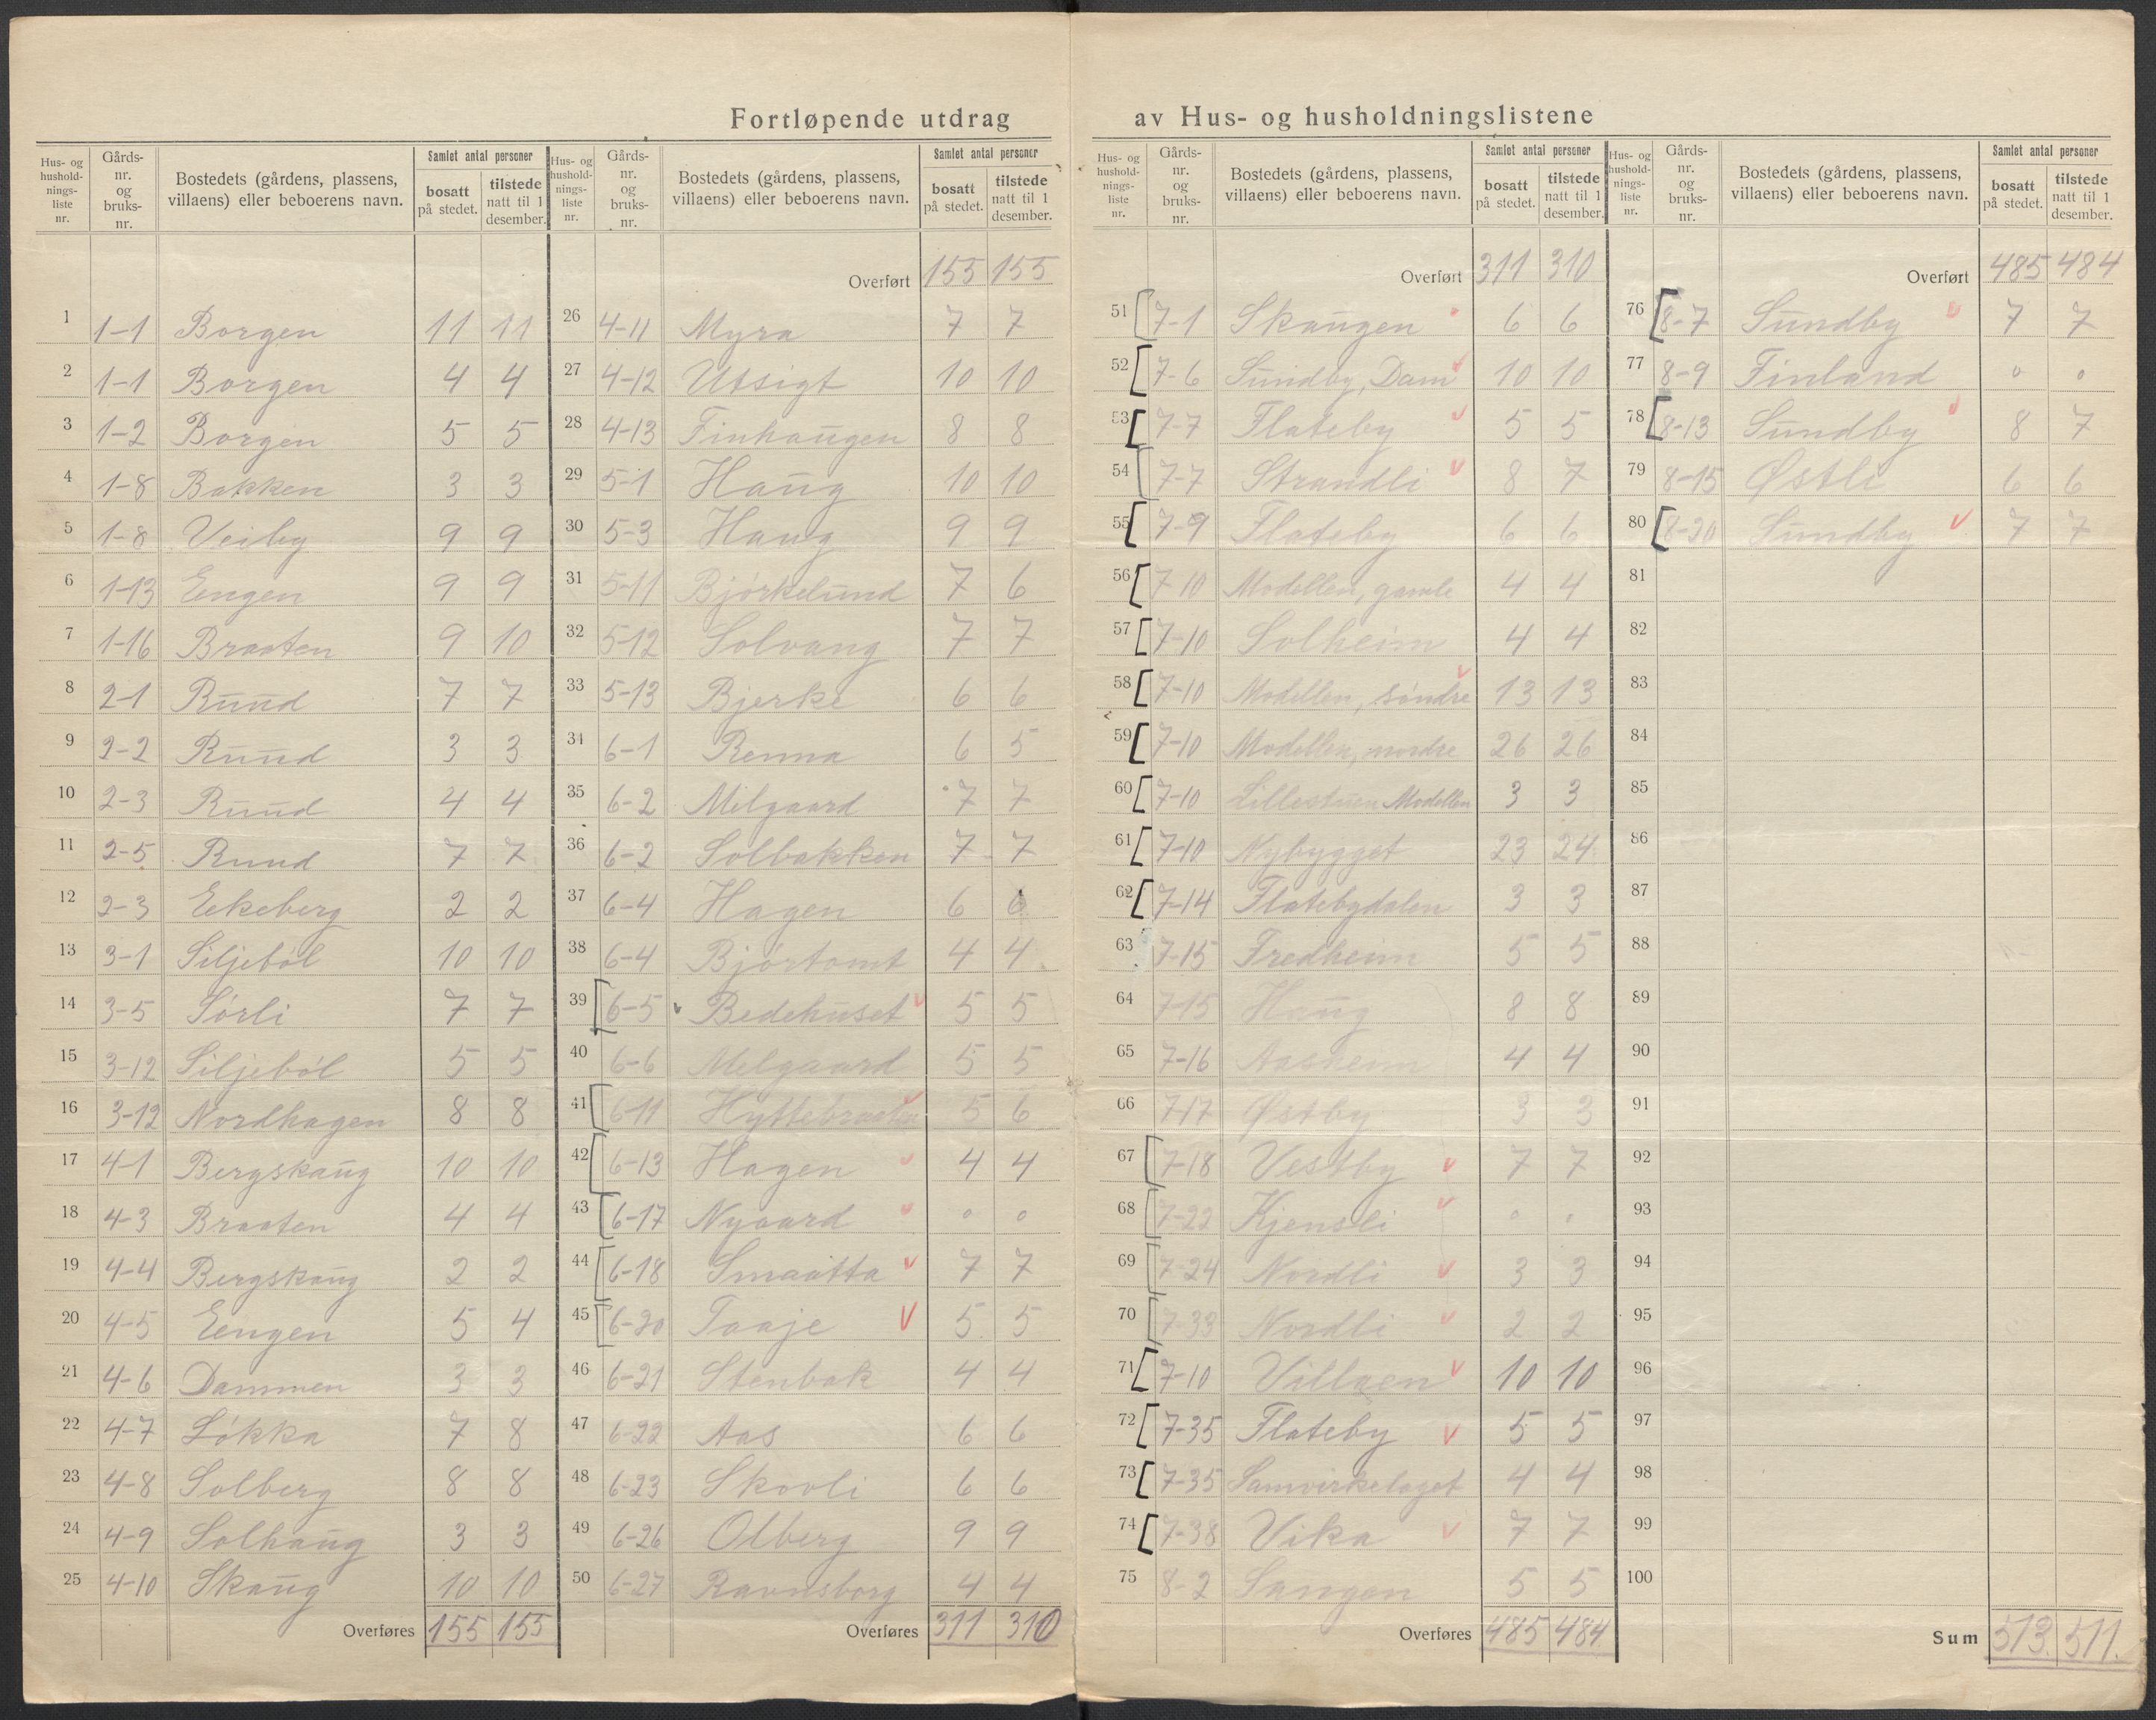 Fortløpende utdrag av Hus- og husholdningslistene
Hus- og husholdnings-liste nr. | Gårds-nr. og bruks-nr. | Bostedets (gårdens, plassens, villaens) eller beboerens navn. | Samlet antal personer bosatt på stedet. | tilstede natt til 1 desember.
1 1-1 Borgen 11 11
2 1-1 Borgen 4 4
3 1-2 Borgen 5 5
4 1-8 Bakken 3 3
5 1-8 Veiby 9 9
6 1-13 Eengen 9 9
7 1-16 Braaten 9 10
8 2-1 Ruud 7 7
9 2-2 Ruud 3 3
10 2-3 Ruud 4 4
11 2-5 Ruud 7 7
12 2-3 Eekeberg 2 2
13 3-1 Siljebøl 10 10
14 3-5 Sørli 7 7
15 3-12 Siljeból 5 5
16 3-12 Nordhagen 8 8
17 4-1 Bergskaug 10 10
18 4-3 Braaten 4 4
19 4-4 Bergskaug 2 2
20 4-5 Eengen 5 4
21 4-6 Dammen 3 3
22 4-7 Løkka 7 8
23 4-8 Solberg 8 8
24 4-9 Solhaug 3 3
25 4-10 Skaug 10 10
Overføres 155 155
Hus- og husholdnings-liste nr. | Gårds-nr. og bruks-nr. | Bostedets (gårdens, plassens, villaens) eller beboerens navn. | Samlet antal personer bosatt på stedet. | tilstede natt til 1 desember.
Overført 155 155
26 4-11 Myra 7 7
27 4-12 Utsigt 10 10
28 4-13 Finhaugen 8 8
29 5-1 Haug 10 10
30 5-3 Haug 9 9
31 5-11 Bjørkelund 7 6
32 5-12 Solvang 7 7
33 5-13 Bjerke 6 6
34 6-1 Renna 6 5
35 6-2 Milgaard 7 7
36 6-2 Solbakken 7 7
37 6-4 Hagen 6 6
38 6-4 Bjørtomt 4 4
39 6-5 Bedehuset 5 5
40 6-6 Melgaard 5 5
41 6-11 Hyttebraaten 5 6
42 6-13 Hagen 4 4
43 6-17 Nygaard 0 0
44 6-18 Smaatta 7 7
45 6-20 Taaje 5 5
46 6-21 Stenbak 4 4
47 6-22 Aas 6 6
48 6-23 Skovli 6 6
49 6-26 Olberg 9 9
50 6-27 Ravnsborg 4 4
Overføres 311 310
Hus- og husholdnings-liste nr. | Gårds-nr. og bruks-nr. | Bostedets (gårdens, plassens, villaens) eller beboerens navn. | Samlet antal personer bosatt på stedet. | tilstede natt til 1 desember.
Overført 311 310
51 7-1 Skaugen 6 6
52 7-6 Sundby, Dam 10 10
53 7-7 Flateby 5 5
54 7-7 Strandli 8 7
55 7-9 Flateby 6 6
56 7-10 Modellen, gamle 4 4
57 7-10 Solheim 4 4
58 7-10 Modellen, søndre 13 13
59 7-10 Modellen, nordre 26 26
60 7-10 Lillestuen Modellen 3 3
61 7-10 Nybygget 23 24
62 7-14 Flatebydalen 3 3
63 7-15 Fredheim 5 5
64 7-15 Haug 8 8
65 7-16 Aasheim 4 4
66 7-17 Østby 3 3
67 7-18 Vestby 7 7
68 7-22 Kjensli 0 0
69 7-24 Nordli 3 3
70 7-33 Nordli 2 2
71 7-10 Villaen 10 10
72 7-35 Flateby 5 5
73 7-35 Samvirkelaget 4 4
74 7-38 Vika 7 7
75 8-2 Sangen 5 5
Overføres 485 484
Hus- og husholdnings-liste nr. | Gårds-nr. og bruks-nr. | Bostedets (gårdens, plassens, villaens) eller beboerens navn. | Samlet antal personer bosatt på stedet. | tilstede natt til 1 desember.
Overført 485 484
76 8-7 Sundby 7 7
77 8-9 Finland 0 0
78 8-13 Sundby 8 7
79 8-15 Østli 6 6
80 8-20 Sundby 7 7
81
82
83
84
85
86
87
88
89
90
91
92
93
94
95
96
97
98
99
100
Sum 513. 511.